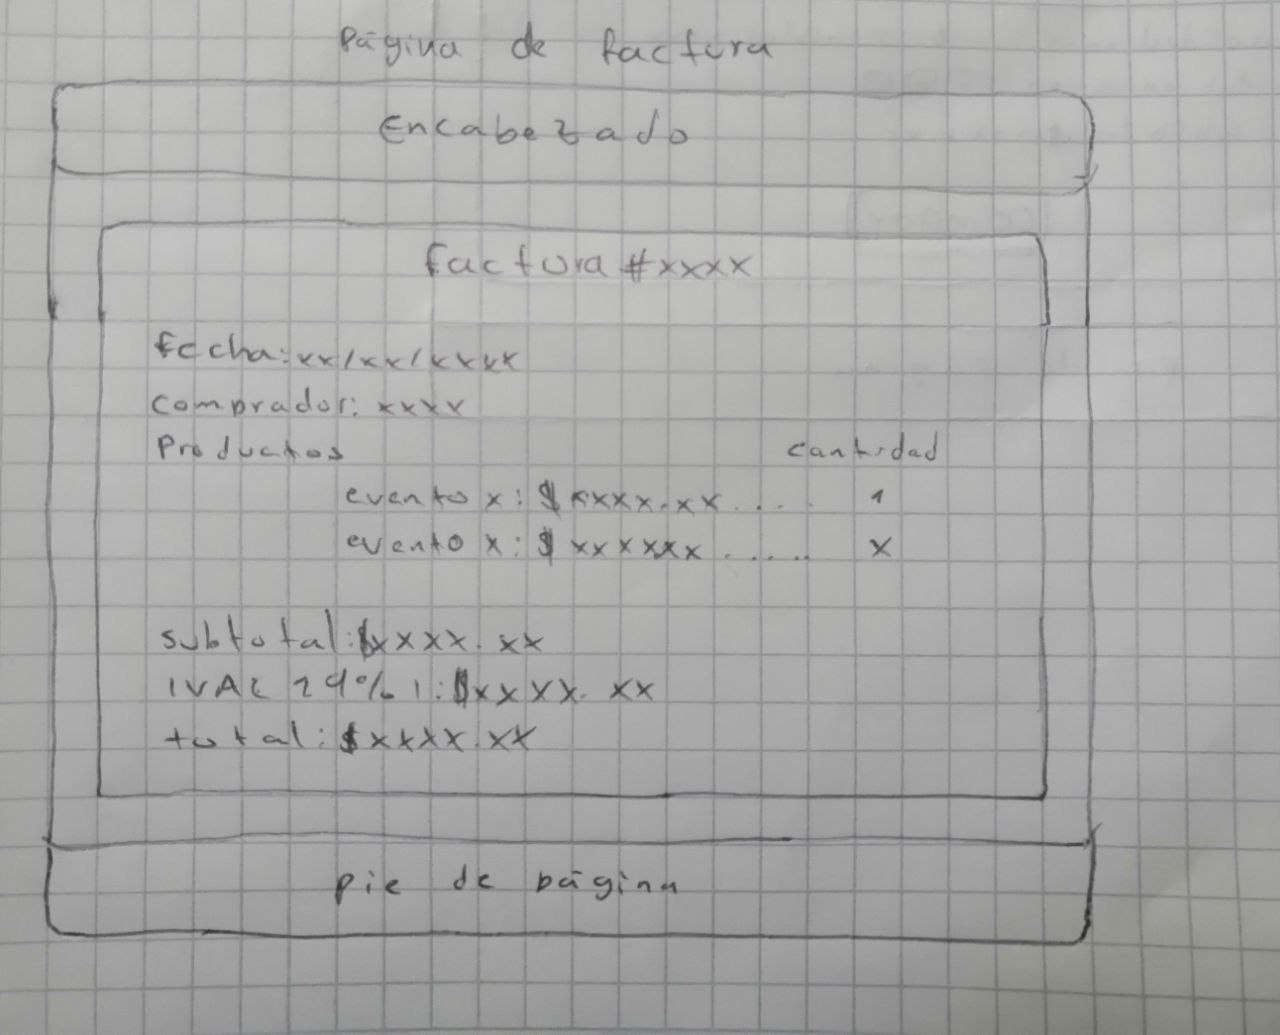 Página de factura
Encabezado
factura #xxxx
fecha: xx/xx/xxxx
comprador: xxxx
Productos cantidad
evento x: $ xxxx.xx..... 1
evento x: $ xxxxxx ..... x
subtotal: $xxxx.xx
IVA( 29% ): $xxxx.xx
total: $xxxx.xx
pie de página